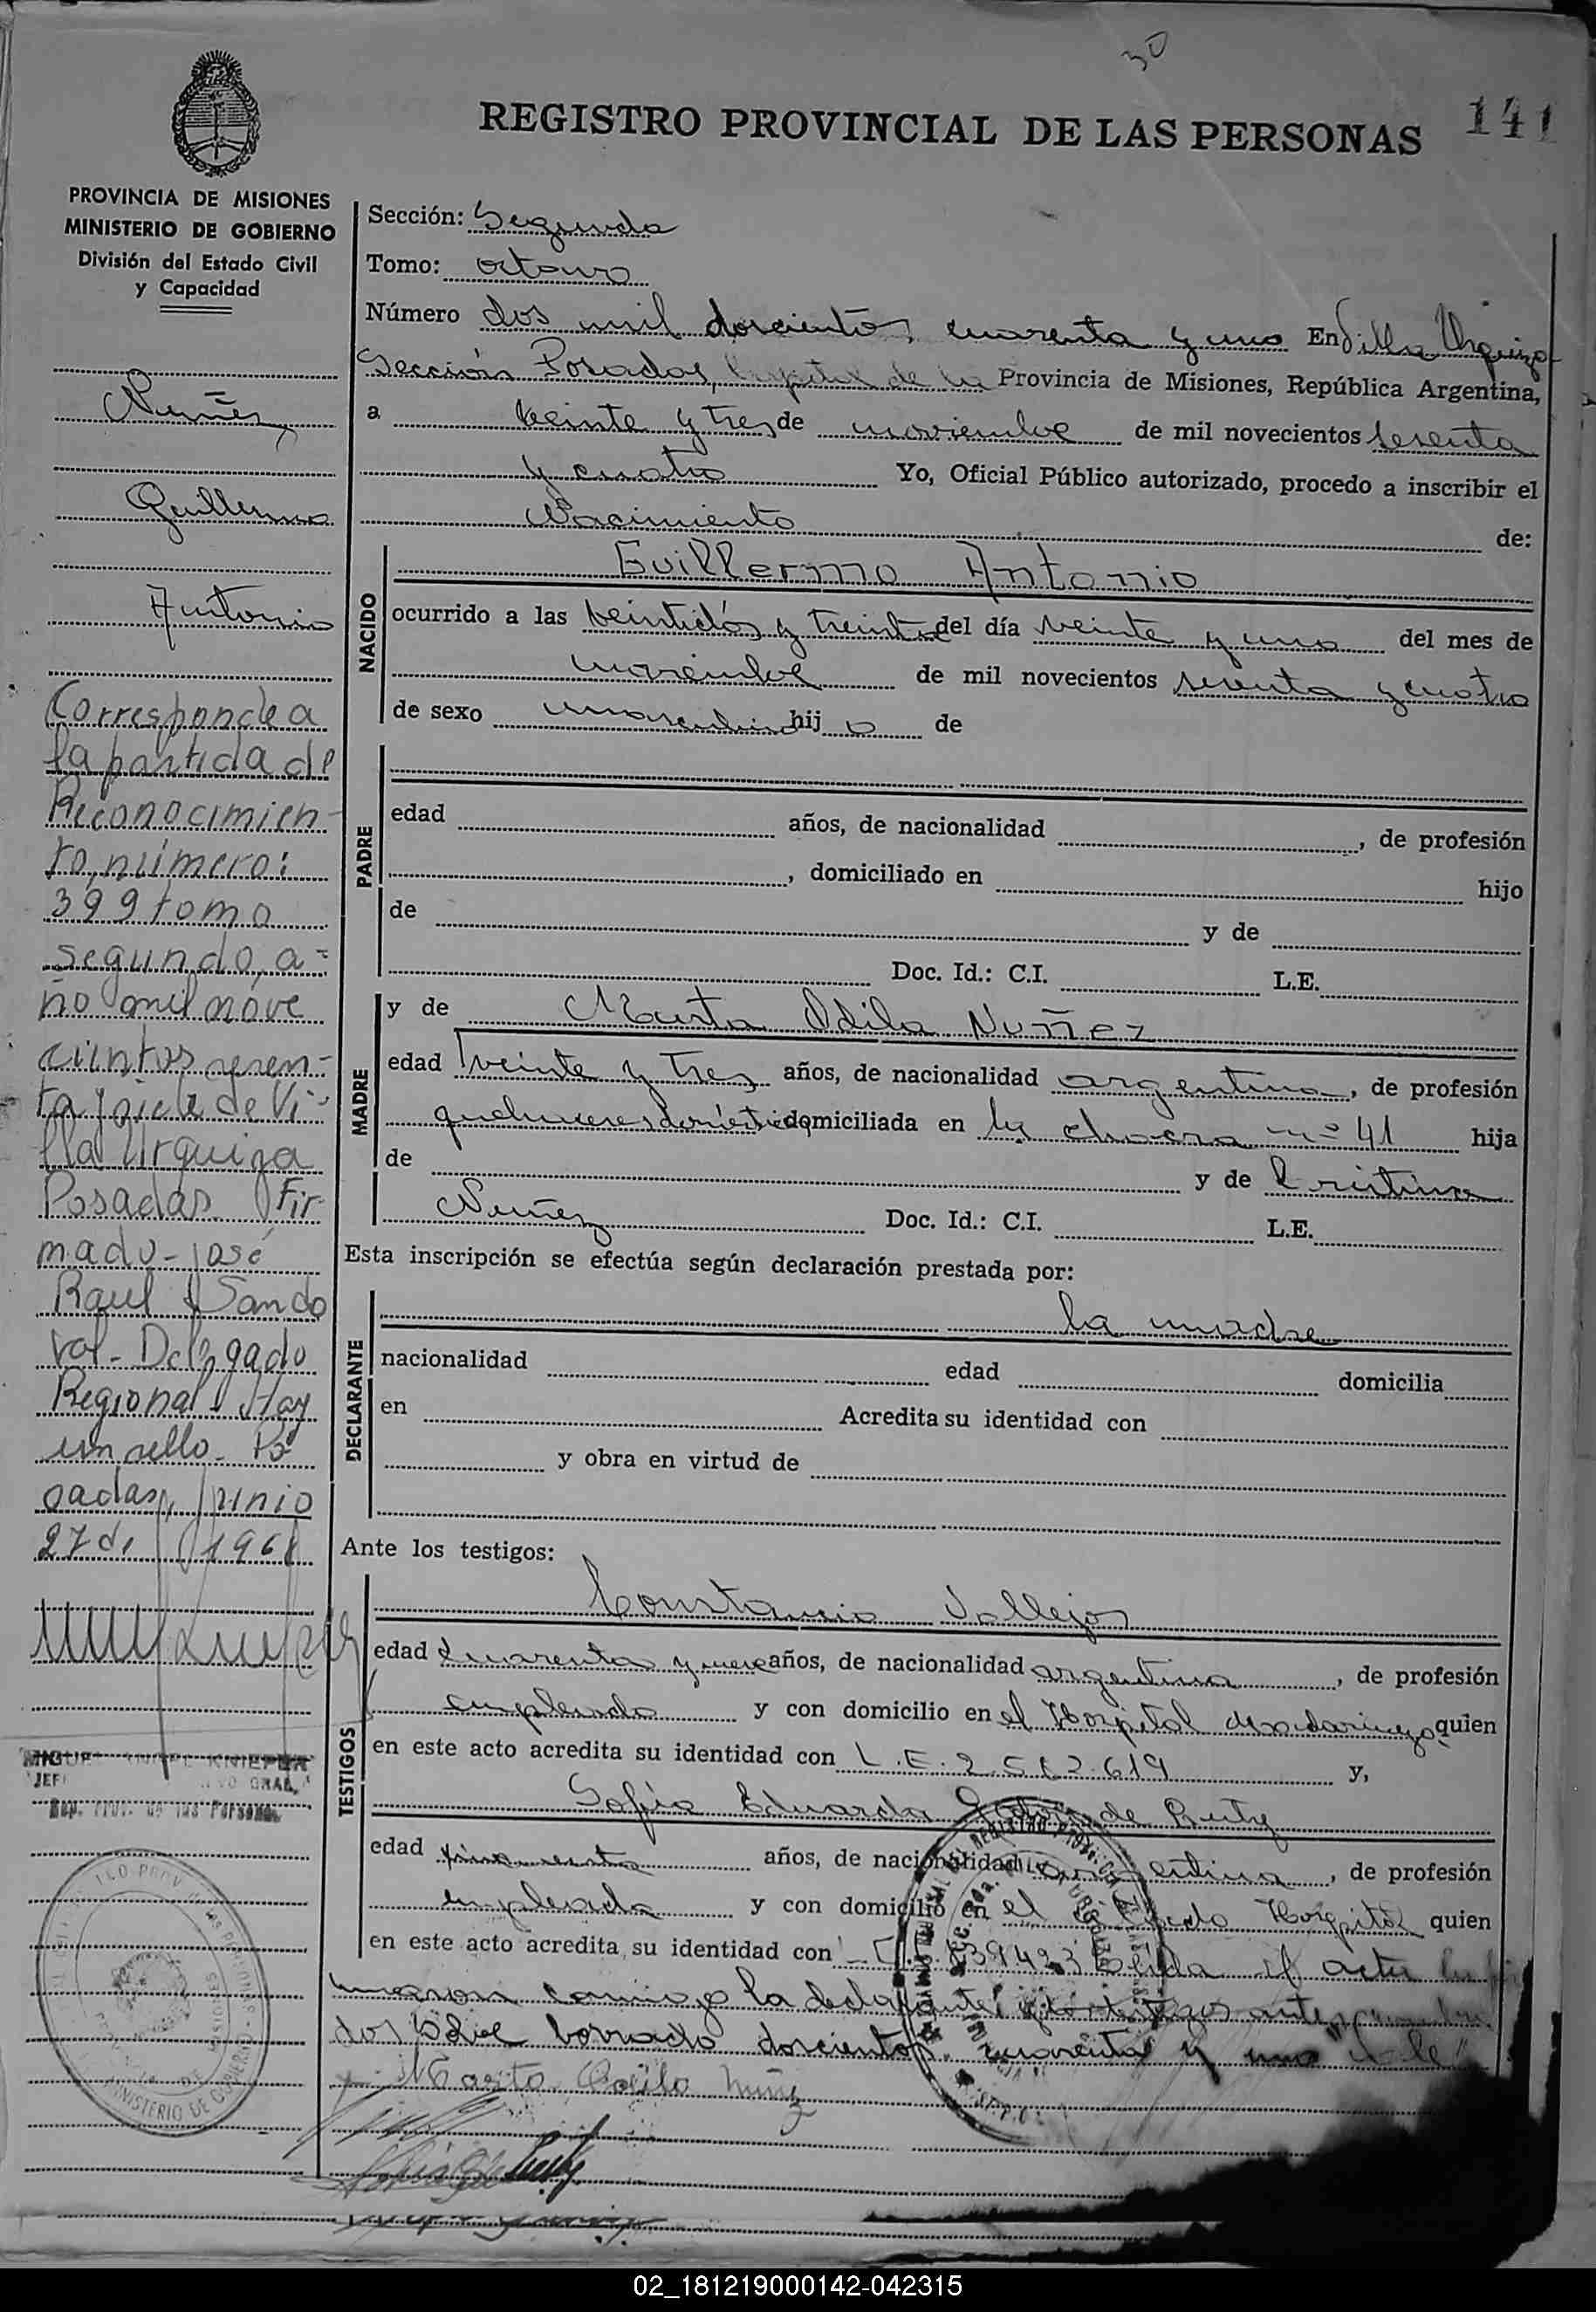 30
141
REGISTRO PROVINCIAL DE LAS PERSONAS
PROVINCIA DE MISIONES
MINISTERIO DE GOBIERNO
División del Estado Civil
y Capacidad
Nuñez
Guillermo
Antonio
Corresponde a
la partida de
Reconocimien-
to, número:
399 tomo
segundo, a-
ño mil nove
cientos sesen-
ta y siete de Vi-
lla Urquiza
Posadas Fir
mado - José
Raul Sando
val - Delegado
Regional Hay
un sello - Po
sadas, Junio
27 de 1968
Rep. Prov. de las Personas
Sección: Segunda
Tomo: octavo
Número dos mil doscientos cuarenta y uno En Villa Urquiza
Sección Posadas, Capital de la Provincia de Misiones, República Argentina,
a veinte y tres de noviembre de mil novecientos sesenta
y cuatro Yo, Oficial Público autorizado, procedo a inscribir el
Nacimiento de:
NACIDO
Guillermo Antonio
ocurrido a las veintidós y treinta del día veinte y uno del mes de
noviembre de mil novecientos sesenta y cuatro
de sexo masculino hijo de
PADRE
edad años, de nacionalidad , de profesión
, domiciliado en hijo
de y de
Doc. Id.: C.I. L.E.
MADRE
y de Marta Odila Nuñez
edad veinte y tres años, de nacionalidad argentina, de profesión
quehaceres domésticos domiciliada en la chacra nº 41 hija
de y de Cristina
Nuñez Doc. Id.: C.I. L.E.
Esta inscripción se efectúa según declaración prestada por:
DECLARANTE
la madre
nacionalidad edad domicilia
en Acredita su identidad con
y obra en virtud de
Ante los testigos:
TESTIGOS
Constancio Vallejos
edad cuarenta y nueve años, de nacionalidad argentina, de profesión
empleado y con domicilio en el Hospital quien
en este acto acredita su identidad con L.E. 2.562.619 y,
Sofía Eduarda de Ruty
edad cincuenta años, de nacionalidad argentina, de profesión
empleada y con domicilio en el citado Hospital quien
en este acto acredita su identidad con Leída el acta
conmigo la declarante y los testigos antes
dos Sobre borrado doscientos cuarenta y uno "Vale"
Marta Odila Nuñez
02_181219000142-042315